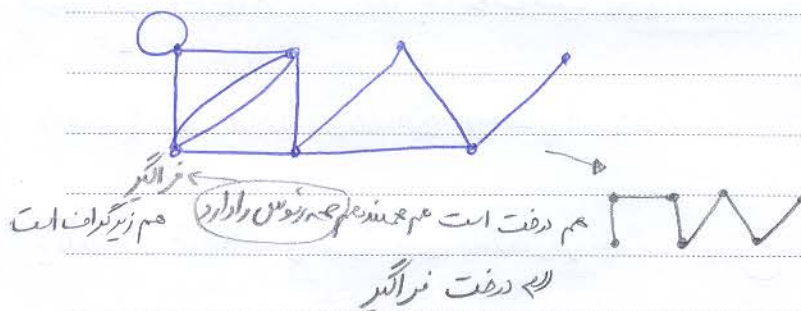 فراگیر
هم درخت است هم همبند هم همه رئوس را دارد هم زیرگراف است
درخت فراگیر